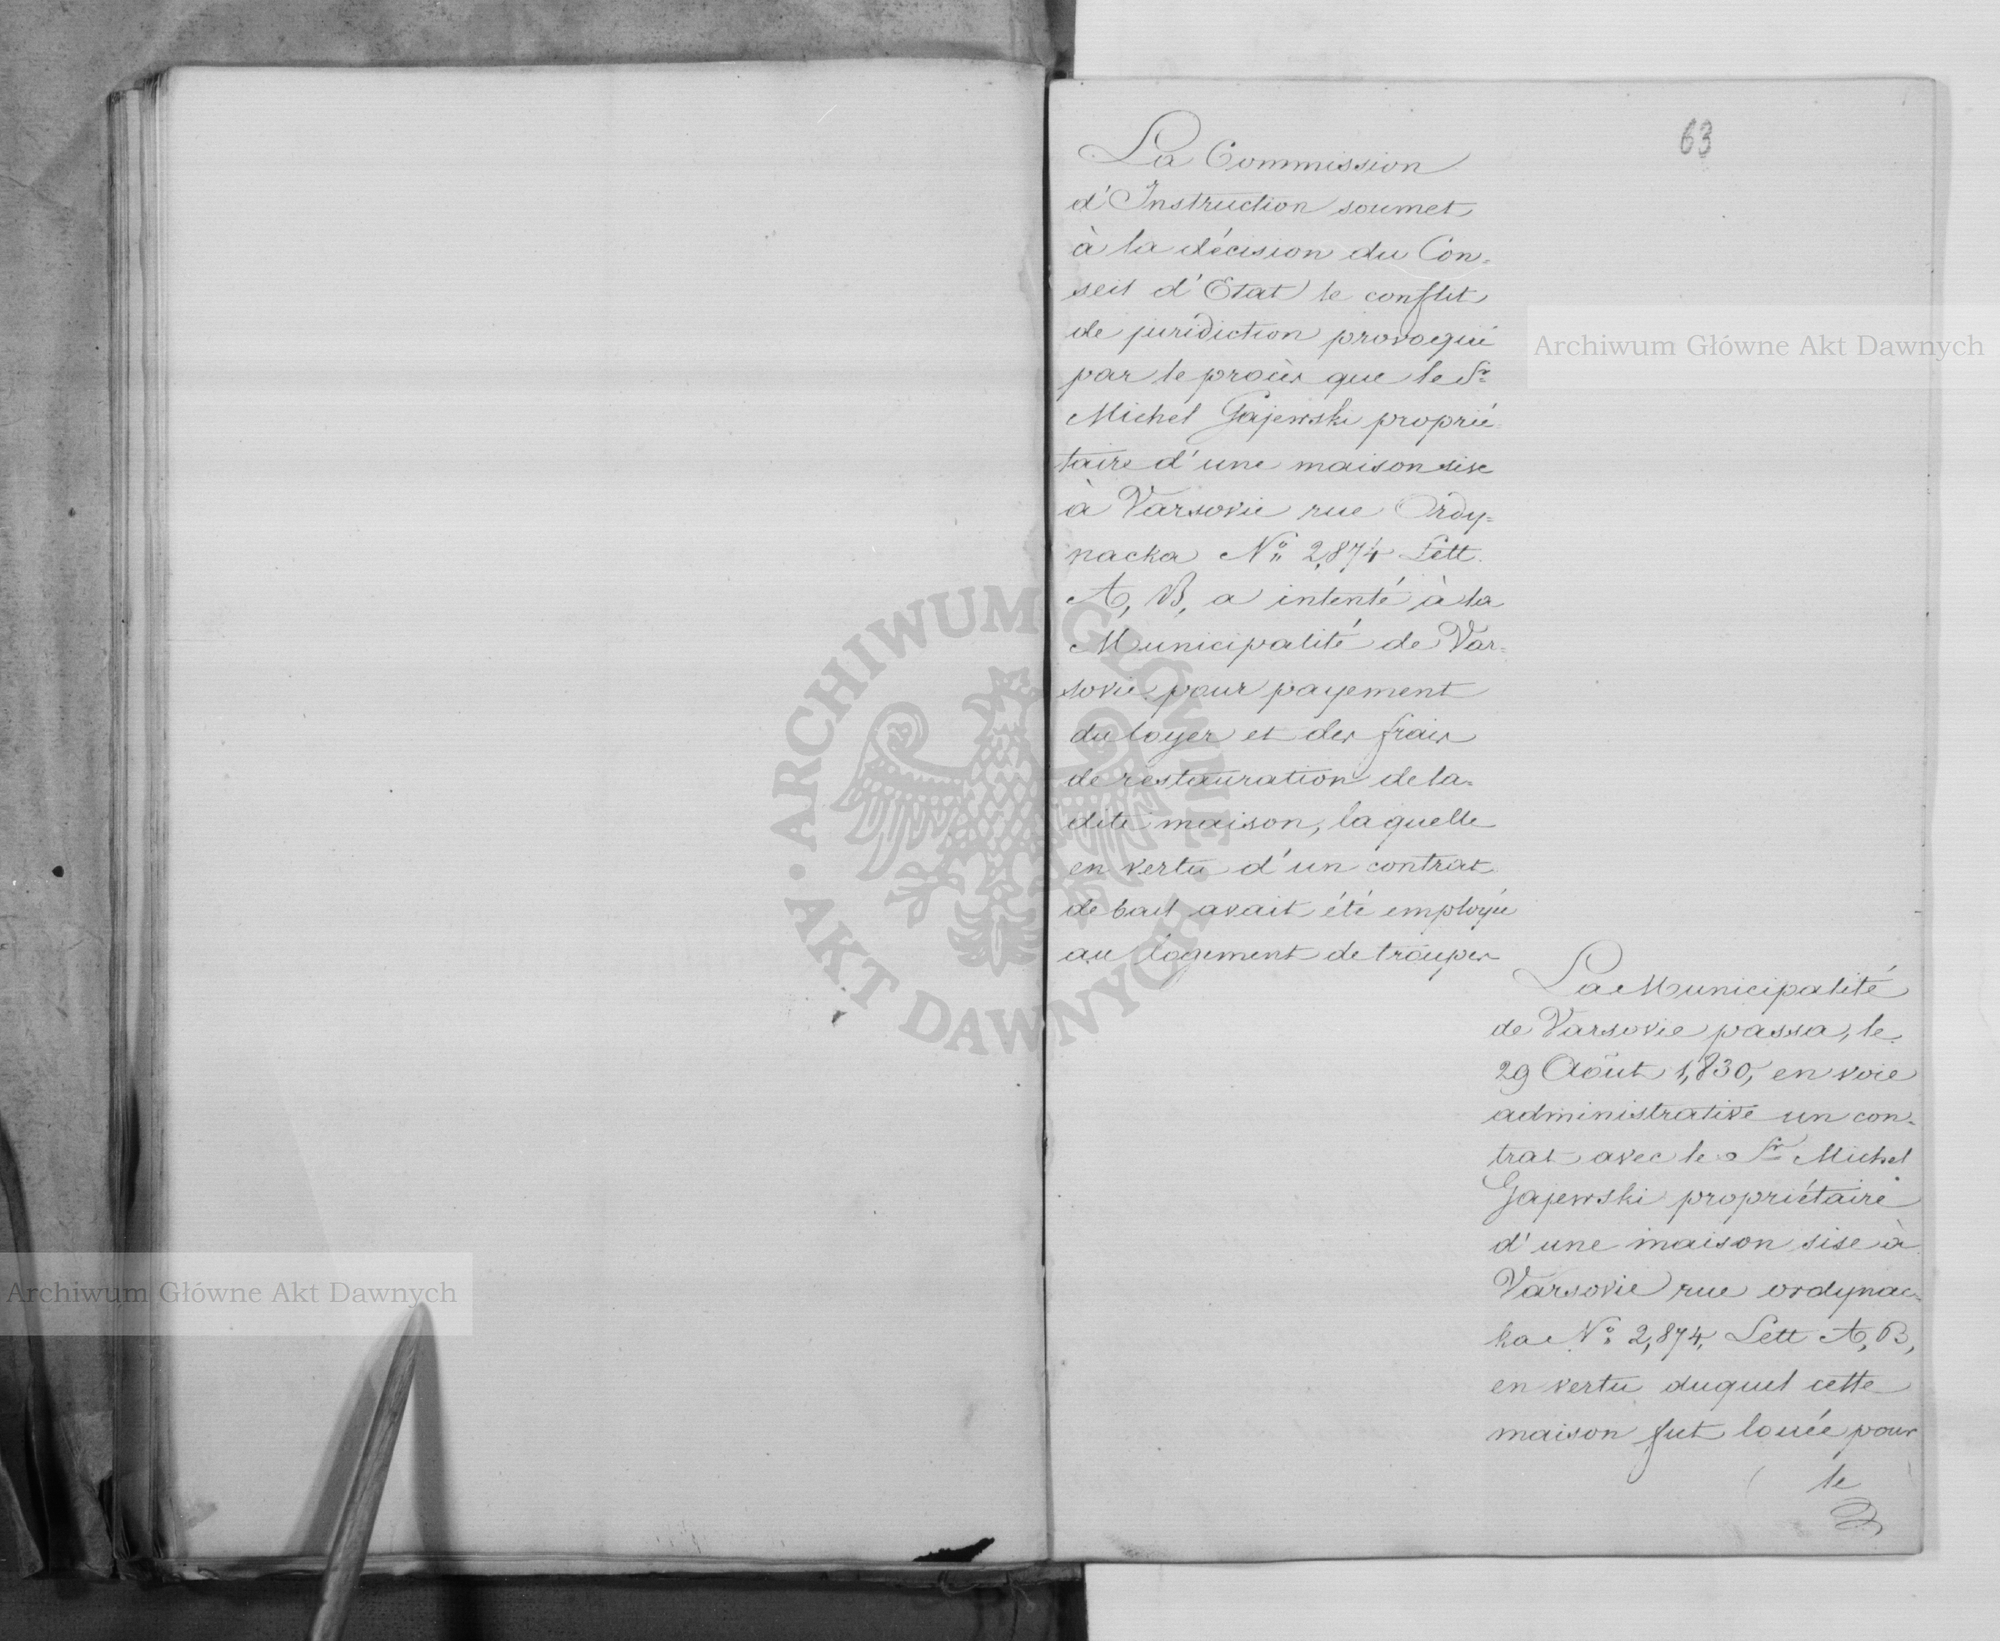 63
La Commission
d'Instruction soumet
à la décision du Con=
seil d'Etat le conflit
de juridiction provoqué
par le procès que le Sr
Michel Gajewski proprié=
taire d'une maison sise
à Varsovie rue Ordy=
nacka No 2,874 Lett.
A, B, a intenté à la
Municipalité de Var=
sovie pour payement
du loyer et des frais
de restauration de la=
dite maison, laquelle
en vertu d'un contrat
de bail avait été employée
au logement de troupes
La Municipalité
de Varsovie passa, le
29 Août 1,830, en voie
administrative un con=
trat avec le Sr Michel
Gajewski propriétaire
d'une maison sise à
Varsovie rue ordynac=
ka No 2,874, Lett A, B,
en vertu duquel cette
maison fut louée pour
le
Archiwum Główne Akt Dawnych
Archiwum Główne Akt Dawnych
ARCHIWUM GŁÓWNE · AKT DAWNYCH ·